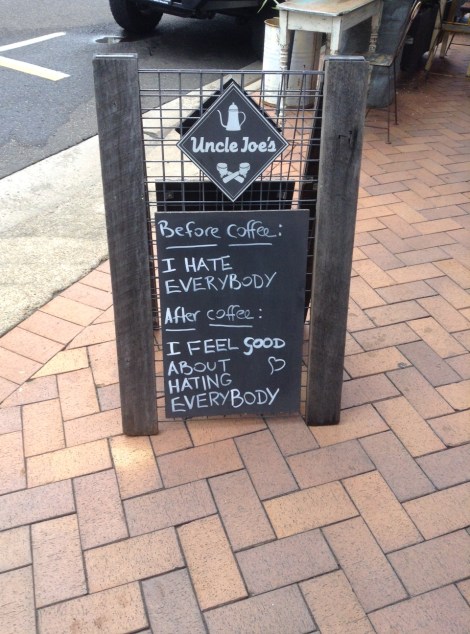 Uncle Joe's
Before Coffee:
I HATE
EVERYBODY
After coffee:
I FEEL GOOD
ABOUT ♡
HATING
EVERYBODY